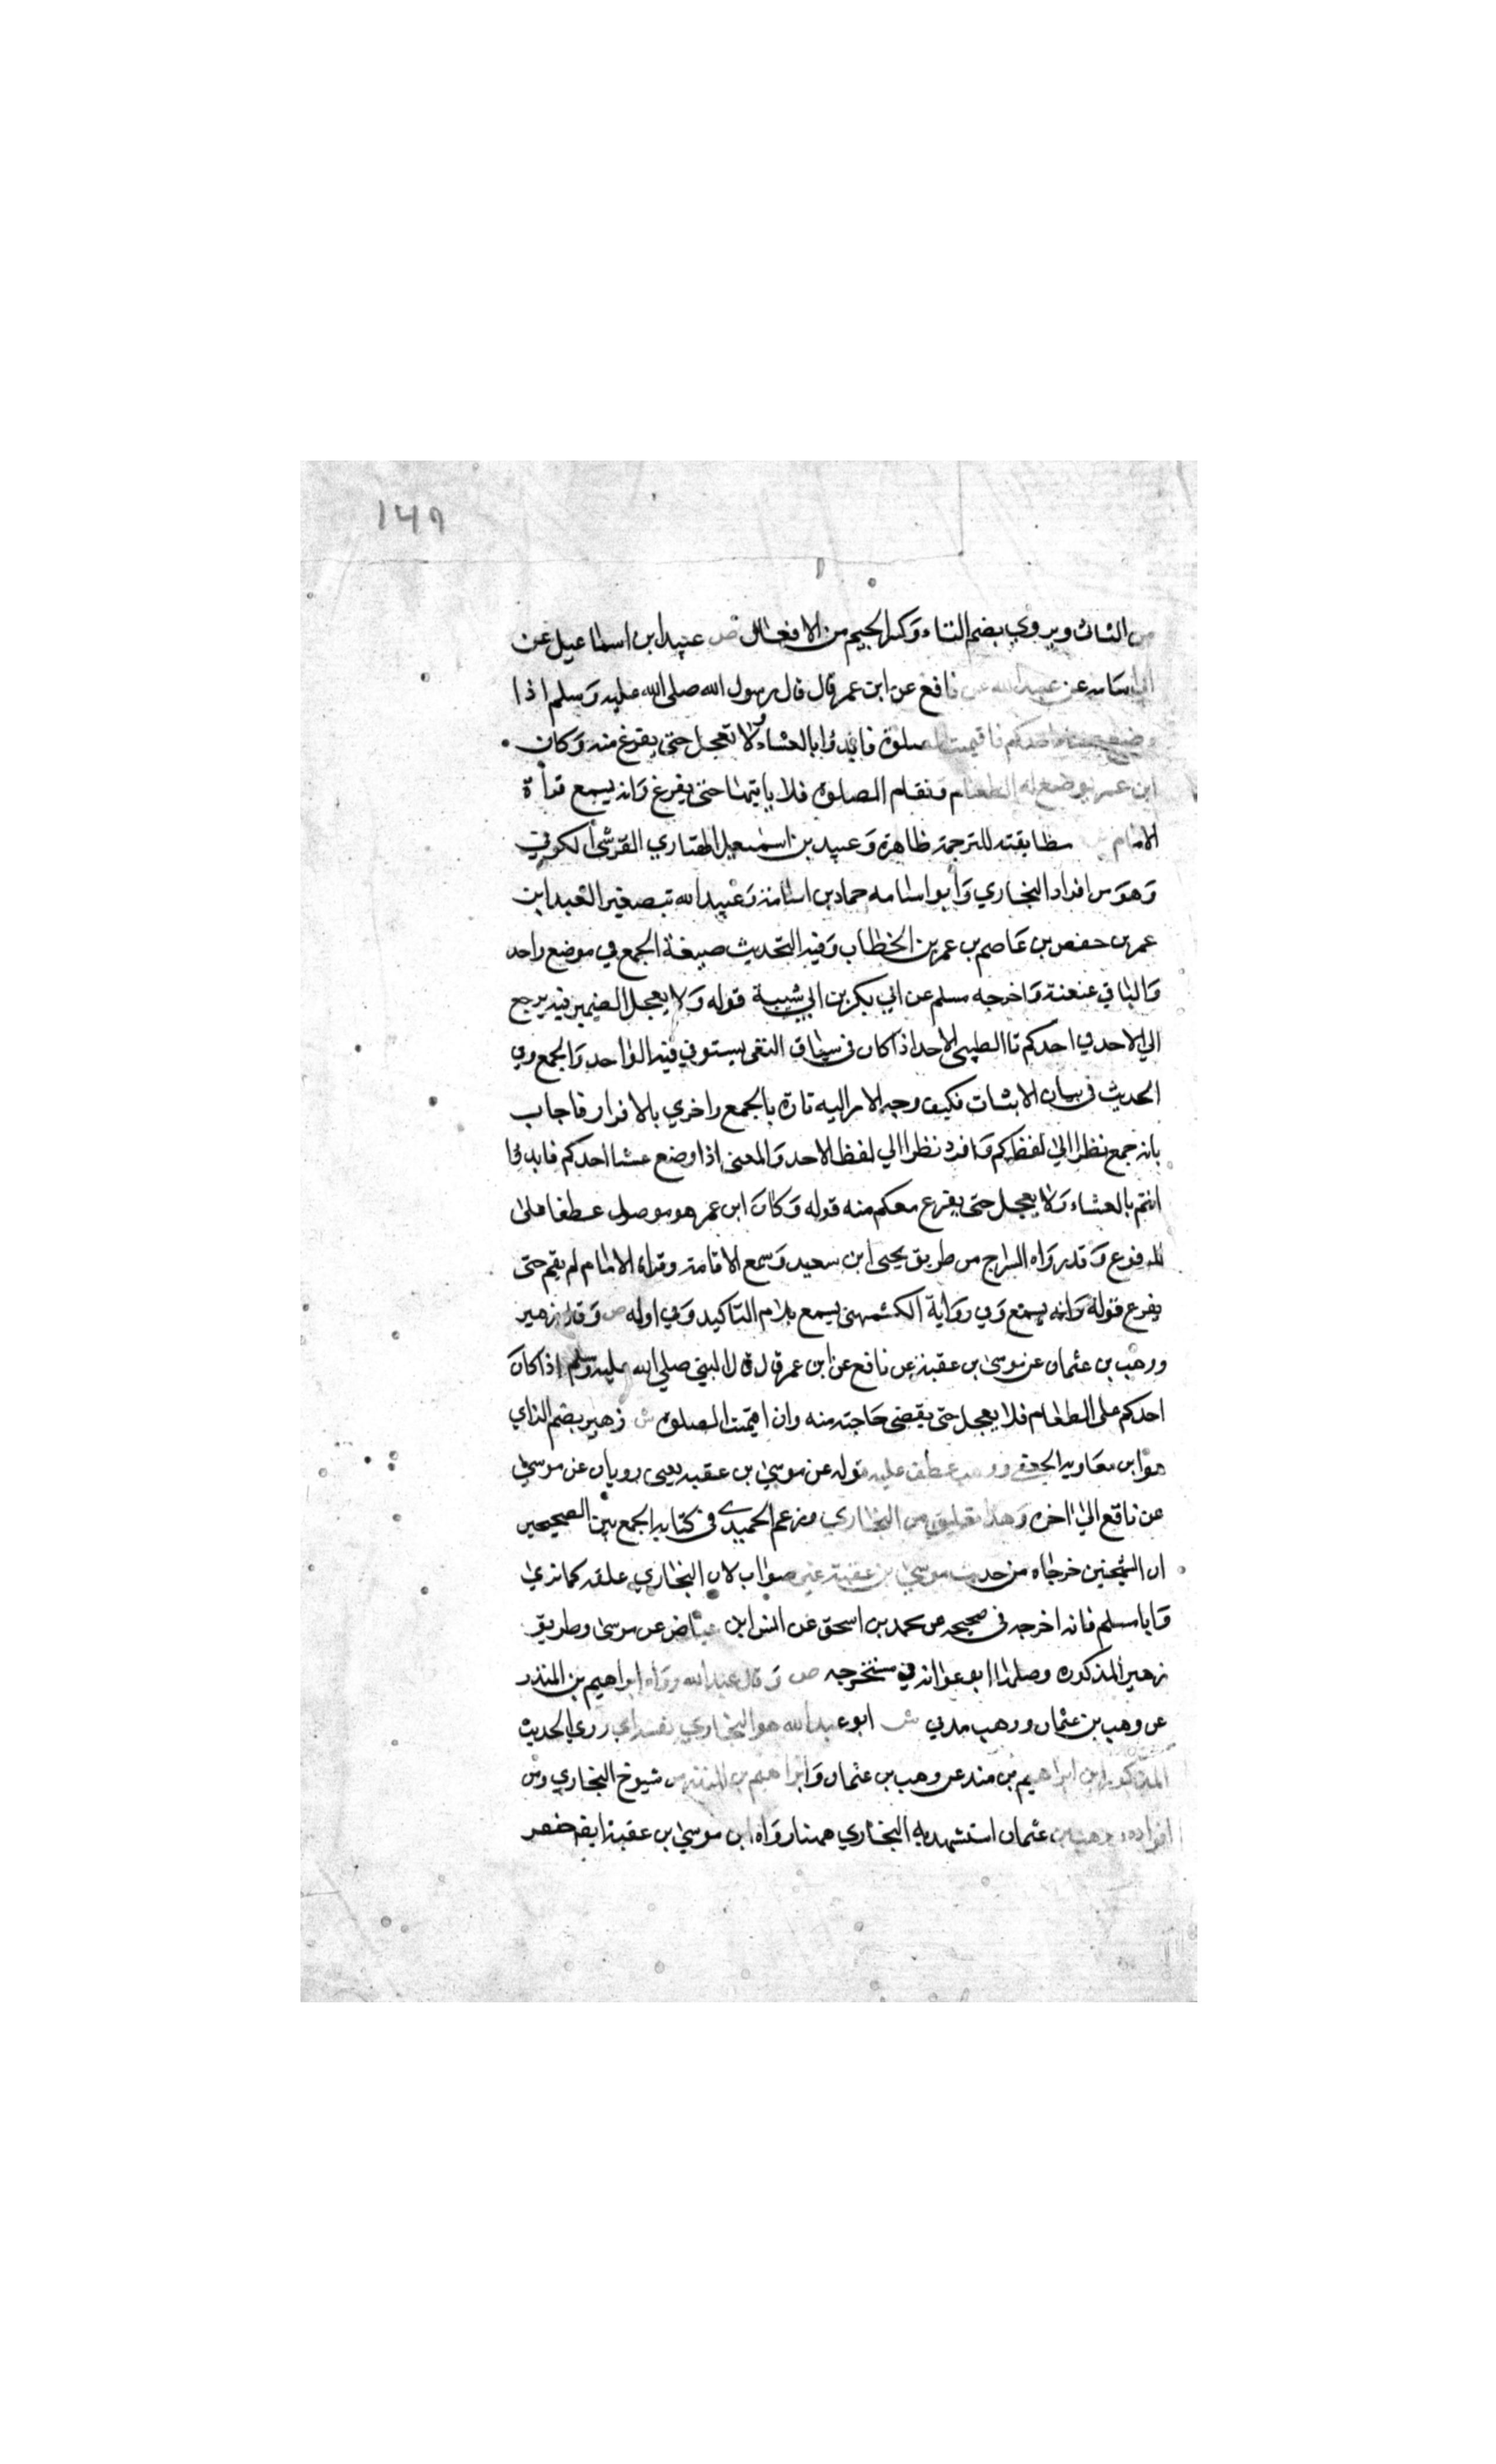 ١٤٩
من الثاث ويروي بضم التاء وكسر الجيم من الافعال ص عبيد ابن اسماعيل عن
ابي اسامه عن عبيد الله عن نافع عن ابن عمر قال قال رسول الله صلى الله عليه وسلم اذا
وضع عشاء احدكم فاقيمت الصلوة فابدؤا بالعشاء ولا تعجل حتى يفرغ منه وكان
ابن عمر يوضع له الطعام وتقام الصلوة فلا ياتيها حتى يفرغ وانه يسمع قرأة
الامام ش مطابقته للترجمة ظاهرة وعبيد بن اسمعيل الهباري القرشي الكوفي
وهو من افراد البخاري وابو اسامه حماد بن اسامة وعبيد الله بتصغير العبد ابن
عمر بن حفص بن عاصم بن عمر بن الخطاب وفيه التحديث صيغة الجمع في موضع واحد
والباقي عنعنة واخرجه مسلم عن ابي بكر بن ابي شيبة قوله ولا يعجل الضمير فيه يرجع
الي الاحد في احدكم قا الطيبي الاحد اذا كان في سياق النفي يستوي فيه الواحد والجمع وفي
الحديث في بيان الاثبات فكيف وجه الامر اليه تارة بالجمع واخري بالافراد فاجاب
بانه جمع نظرا الي لفظ كم وافرد نظرا الي لفظ الاحد والمعنى اذا وضع عشا احدكم فابدؤا
انتم بالعشاء ولا يعجل حتى يفرغ معكم منه قوله وكان ابن عمر هو موصول عطفا على
المرفوع وقد رواه السراج من طريق يحيى ابن سعيد وسمع الاقامة وقراة الامام لم يقم حتى
يفرغ قوله وانه يسمع وفي رواية الكشمهني يسمع بلام التاكيد وفي اوله ص وقال زهير
ووهب بن عثمان عن موسى بن عقبة عن نافع عن ابن عمر قال قال النبي صلي الله عليه وسلم اذا كان
احدكم على الطعام فلا يعجل حتى يقضى حاجته منه وان اقيمت الصلوة ش زهير بضم الزاي
هو ابن معاوية الجعفي ووهب عطف عليه قوله عن موسي بن عقبه يعيى رويان عن موسي
عن نافع الي اخره وهذا تعليق من البخاري وزعم الحميدي في كتابه الجمع بين الصحيحين
ان الشيخين خرجاه من حديث موسي بن عقبة غير صواب لان البخاري علقه كما تري
واما مسلم فانه اخرجه في صحيحه عن محمد بن اسحق عن انس ابن عياض عن موسى وطريق
زهير المذكوره وصلها ابو عوانه في مستخرجه ص وقال عبد الله ورواه ابراهيم بن المنذر
عن وهب بن عثمان ووهب مدني ش ابو عبد الله هو البخاري نفسه اي روي الحديث
المذكور ابن ابراهيم بن منذر عن وهب بن عثمان وابراهيم بن المنذر من شيوخ البخاري ومن
افراده ووهب بن عثمان استشهد به البخاري ههنا رواه ابن موسي بن عقبة ايضا